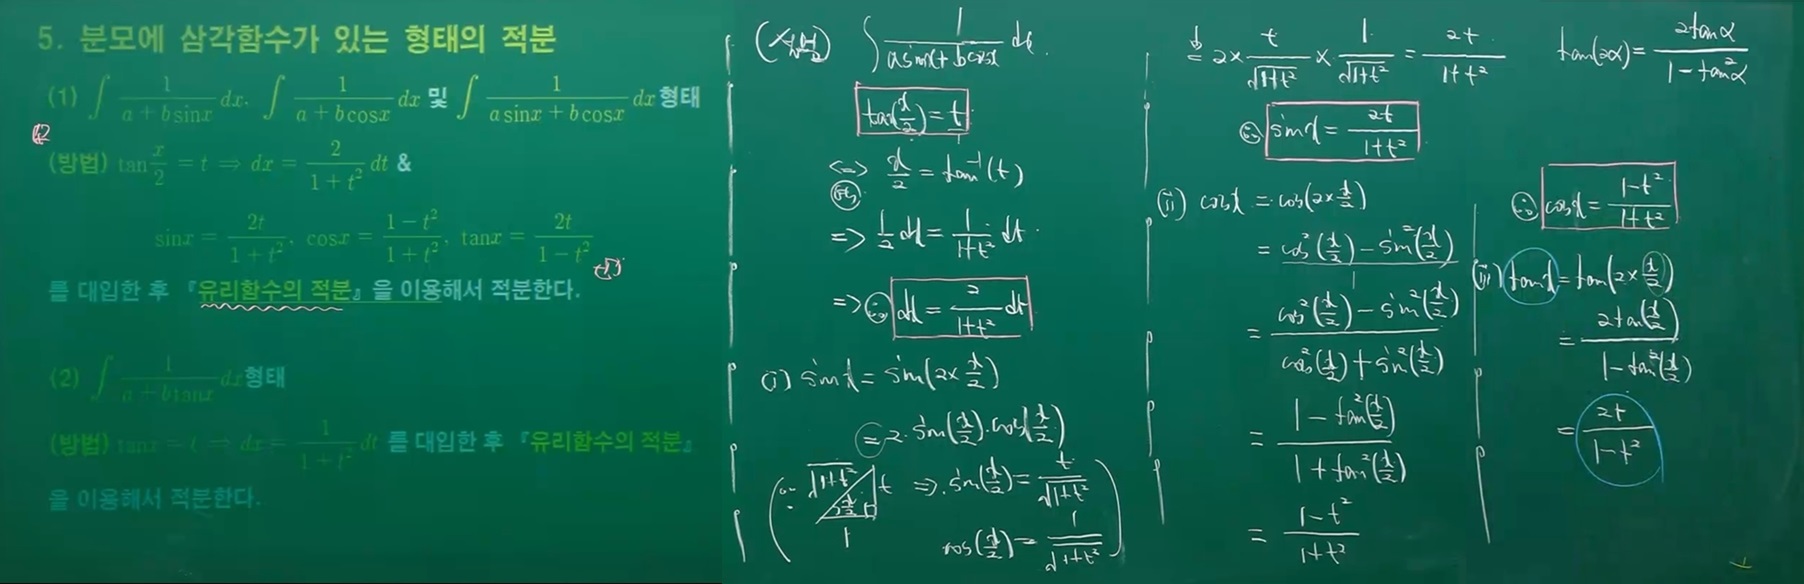 5. 분모에 삼각함수가 있는 형태의 적분
(1) ∫ 1/(a + b sinx) dx. ∫ 1/(a + b cosx) dx 및 ∫ 1/(a sinx + b cosx) dx 형태
(방법) tan x/2 = t ⇒ dx = 2/(1 + t²) dt &
sinx = 2t/(1 + t²), cosx = (1 − t²)/(1 + t²), tanx = 2t/(1 − t²)
를 대입한 후 『유리함수의 적분』을 이용해서 적분한다.
(2) ∫ 1/(a + b tanx) dx 형태
(방법) tanx = t ⇒ dx = 1/(1 + t²) dt 를 대입한 후 『유리함수의 적분』
을 이용해서 적분한다.
∫ 1/(a sinx + b cosx) dx.
tan(x/2) = t
⇔ x/2 = tan⁻¹(t)
⇒ 1/2 dx = 1/(1+t²) dt.
⇒ ∴ dx = 2/(1+t²) dt
(i) sinx = sin(2× x/2)
= 2·sin(x/2)·cos(x/2)
(∵ √(1+t²) t x/2 1 ⇒ sin(x/2) = t/√(1+t²)
cos(x/2) = 1/√(1+t²))
= 2× t/√(1+t²) × 1/√(1+t²) = 2t/(1+t²)
∴ sinx = 2t/(1+t²)
(ii) cosx = cos(2× x/2)
= (cos²(x/2) − sin²(x/2))/1
= (cos²(x/2) − sin²(x/2))/(cos²(x/2) + sin²(x/2))
= (1 − tan²(x/2))/(1 + tan²(x/2))
= (1−t²)/(1+t²)
tan(2α) = 2tanα/(1−tan²α)
∴ cosx = (1−t²)/(1+t²)
(iii) tanx = tan(2× x/2)
= 2tan(x/2)/(1−tan²(x/2))
= 2t/(1−t²)